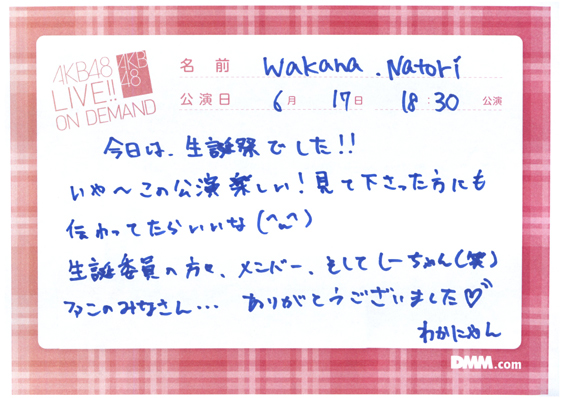 AKB48
LIVE!!
ON DEMAND
AKB
48
名 前 Wakana . Natori
公演日 6月 17日 18:30 公演
今日は、生誕祭でした!!
いや〜この公演楽しい!見て下さった方にも
伝わってたらいいな(^ω^)
生誕委員の方々、メンバー、そしてしーちゃん(笑)
ファンのみなさん... ありがとうございました♡
わかにゃん
DMM.com